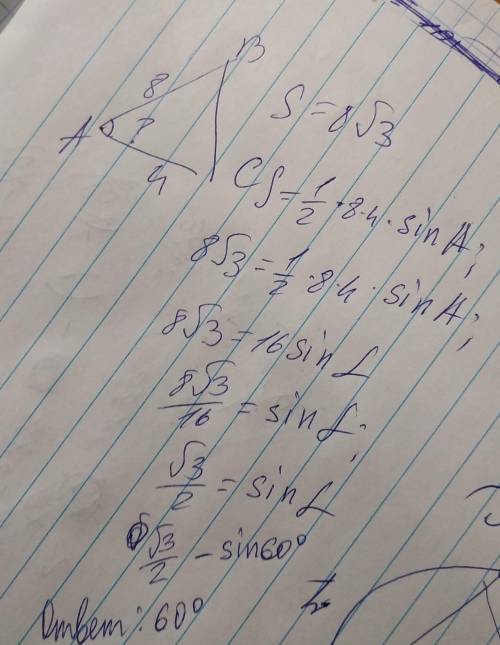 B
8
A ?
4
C
S = 8√3
S = 1/2 · 8 · 4 · sin A;
8√3 = 1/2 · 8 · 4 · sin A;
8√3 = 16 sin L
8√3/16 = sin L;
√3/2 = sin L
√3/2 - sin 60°
Ответ: 60°